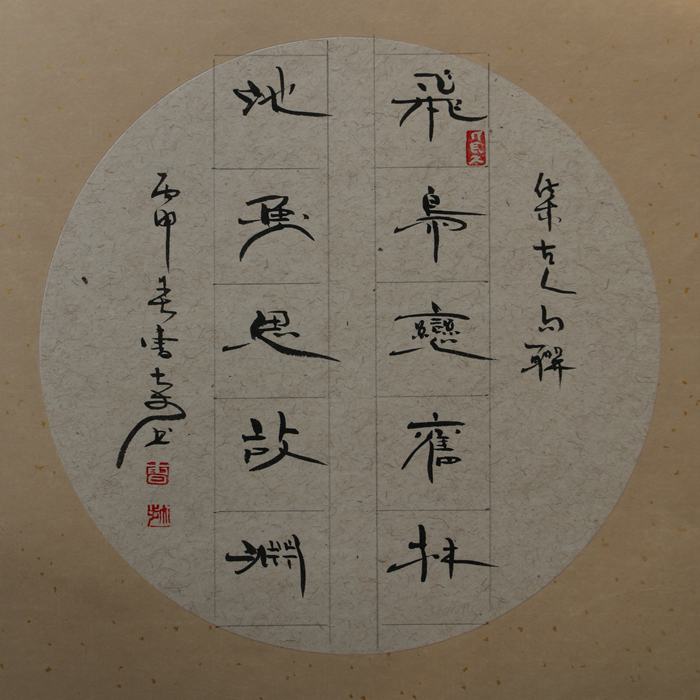 集古人句聯
飛鳥戀舊林
池魚思故淵
丙申春